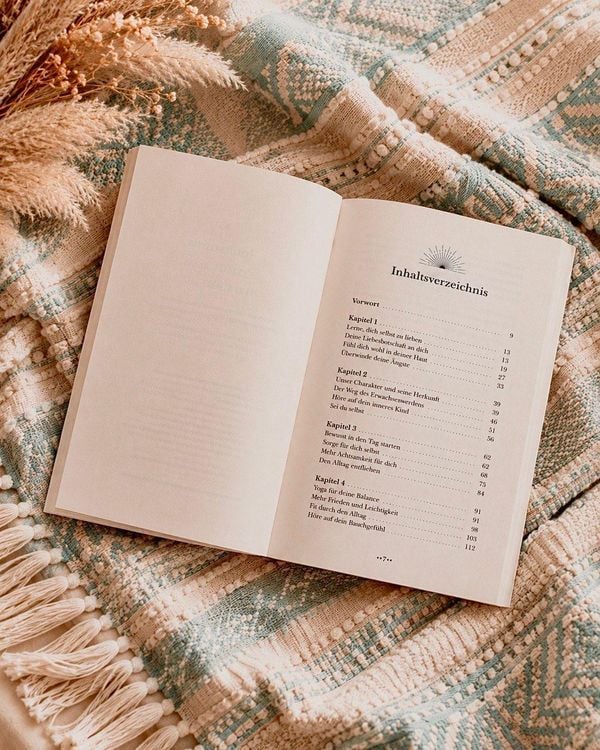 Inhaltsverzeichnis
Vorwort 9
Kapitel 1 13
Lerne, dich selbst zu lieben 13
Deine Liebesbotschaft an dich 19
Fühl dich wohl in deiner Haut 27
Überwinde deine Ängste 33
Kapitel 2 39
Unser Charakter und seine Herkunft 39
Der Weg des Erwachsenwerdens 46
Höre auf dein inneres Kind 51
Sei du selbst 56
Kapitel 3 62
Bewusst in den Tag starten 62
Sorge für dich selbst 68
Mehr Achtsamkeit für dich 75
Den Alltag entfliehen 84
Kapitel 4 91
Yoga für deine Balance 91
Mehr Frieden und Leichtigkeit 98
Fit durch den Alltag 103
Höre auf dein Bauchgefühl 112
••7••